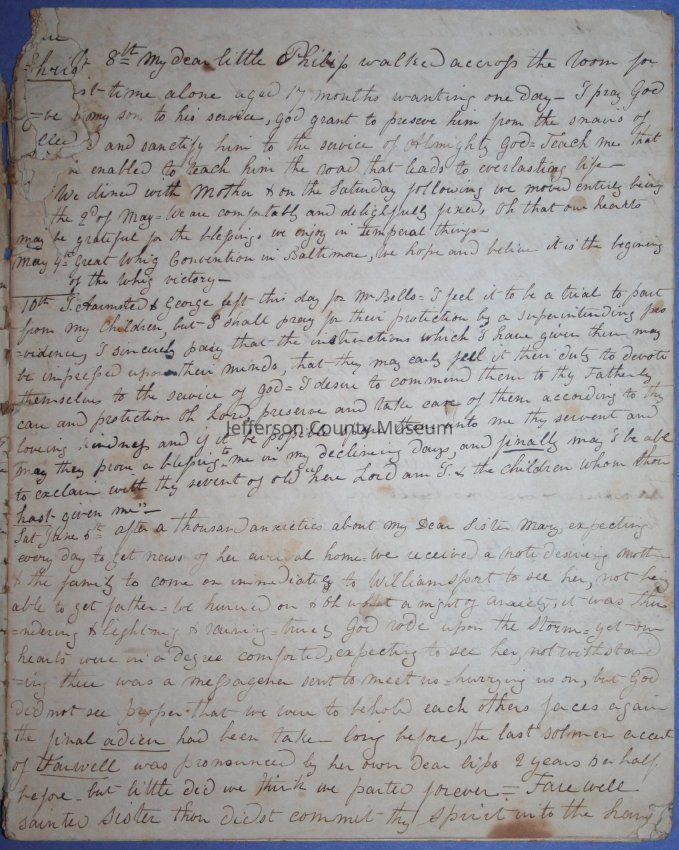 8th My dear little Philip walked accross the room for
time alone aged 17 months wanting one day - I pray God
my son to his service, God grant to preseve him from the snairs of
and sanctify him to the service of Almighty God = Teach me that
enabled to teach him the road that leads to everlasting life -
We dined with Mother & on the Saturday following we moved entirely being
the 2d of May = We are comfortably and delightfully fixed, Oh that our hearts
may be grateful for the blessings we enjoy in temperal things -
May 4th great Whig Convention in Baltimore, we hope and believe it is the begining
of the Whig victory -
10th & George left this day for Mr = I feel it to be a trial to part
from my children, but I shall pray for their protection by a superintending pro
=vidence, I sincerely pray that the instructions which I have given them may
be impressed upon their minds, that they may early feel it their duty to devote
themselves to the service of God = I desire to commend them to thy Fatherly
care and protection Oh Lord, preserve and take care of them according to thy
loveing kindness and if it be posible thy servent and
may they prove a blessing to me in my declining days, and finally may I be able
to exclaim with thy sevent of old "here Lord am I & the children whom thou
hast given me" -
Sat June 6th after a thousand anxieties about my Dear Sister Mary, expecting
every day to get news of her arrival home - we received a note desiring mother
& the family to come on immediately to Williamsport to see her, not being
able to get father = we hurried on & oh what a night of anxiety, it was thu
=ndering & lightning & raining = truely God rode upon the storm = yet our
hearts were in a degree comforted, expecting to see her, notwithstand
=ing there was a messagener sent to meet us = hurrying us on, but God
did not see proper that we were to behold each others faces again
the final adieu had been take long before, the last solomn accent
of Farwell was pronounced by her own dear lips 2 years & half
before - but little did we think we parted forever = Farewell
sainted Sister thou didst commit thy spirit into the hans
Jefferson County Museum